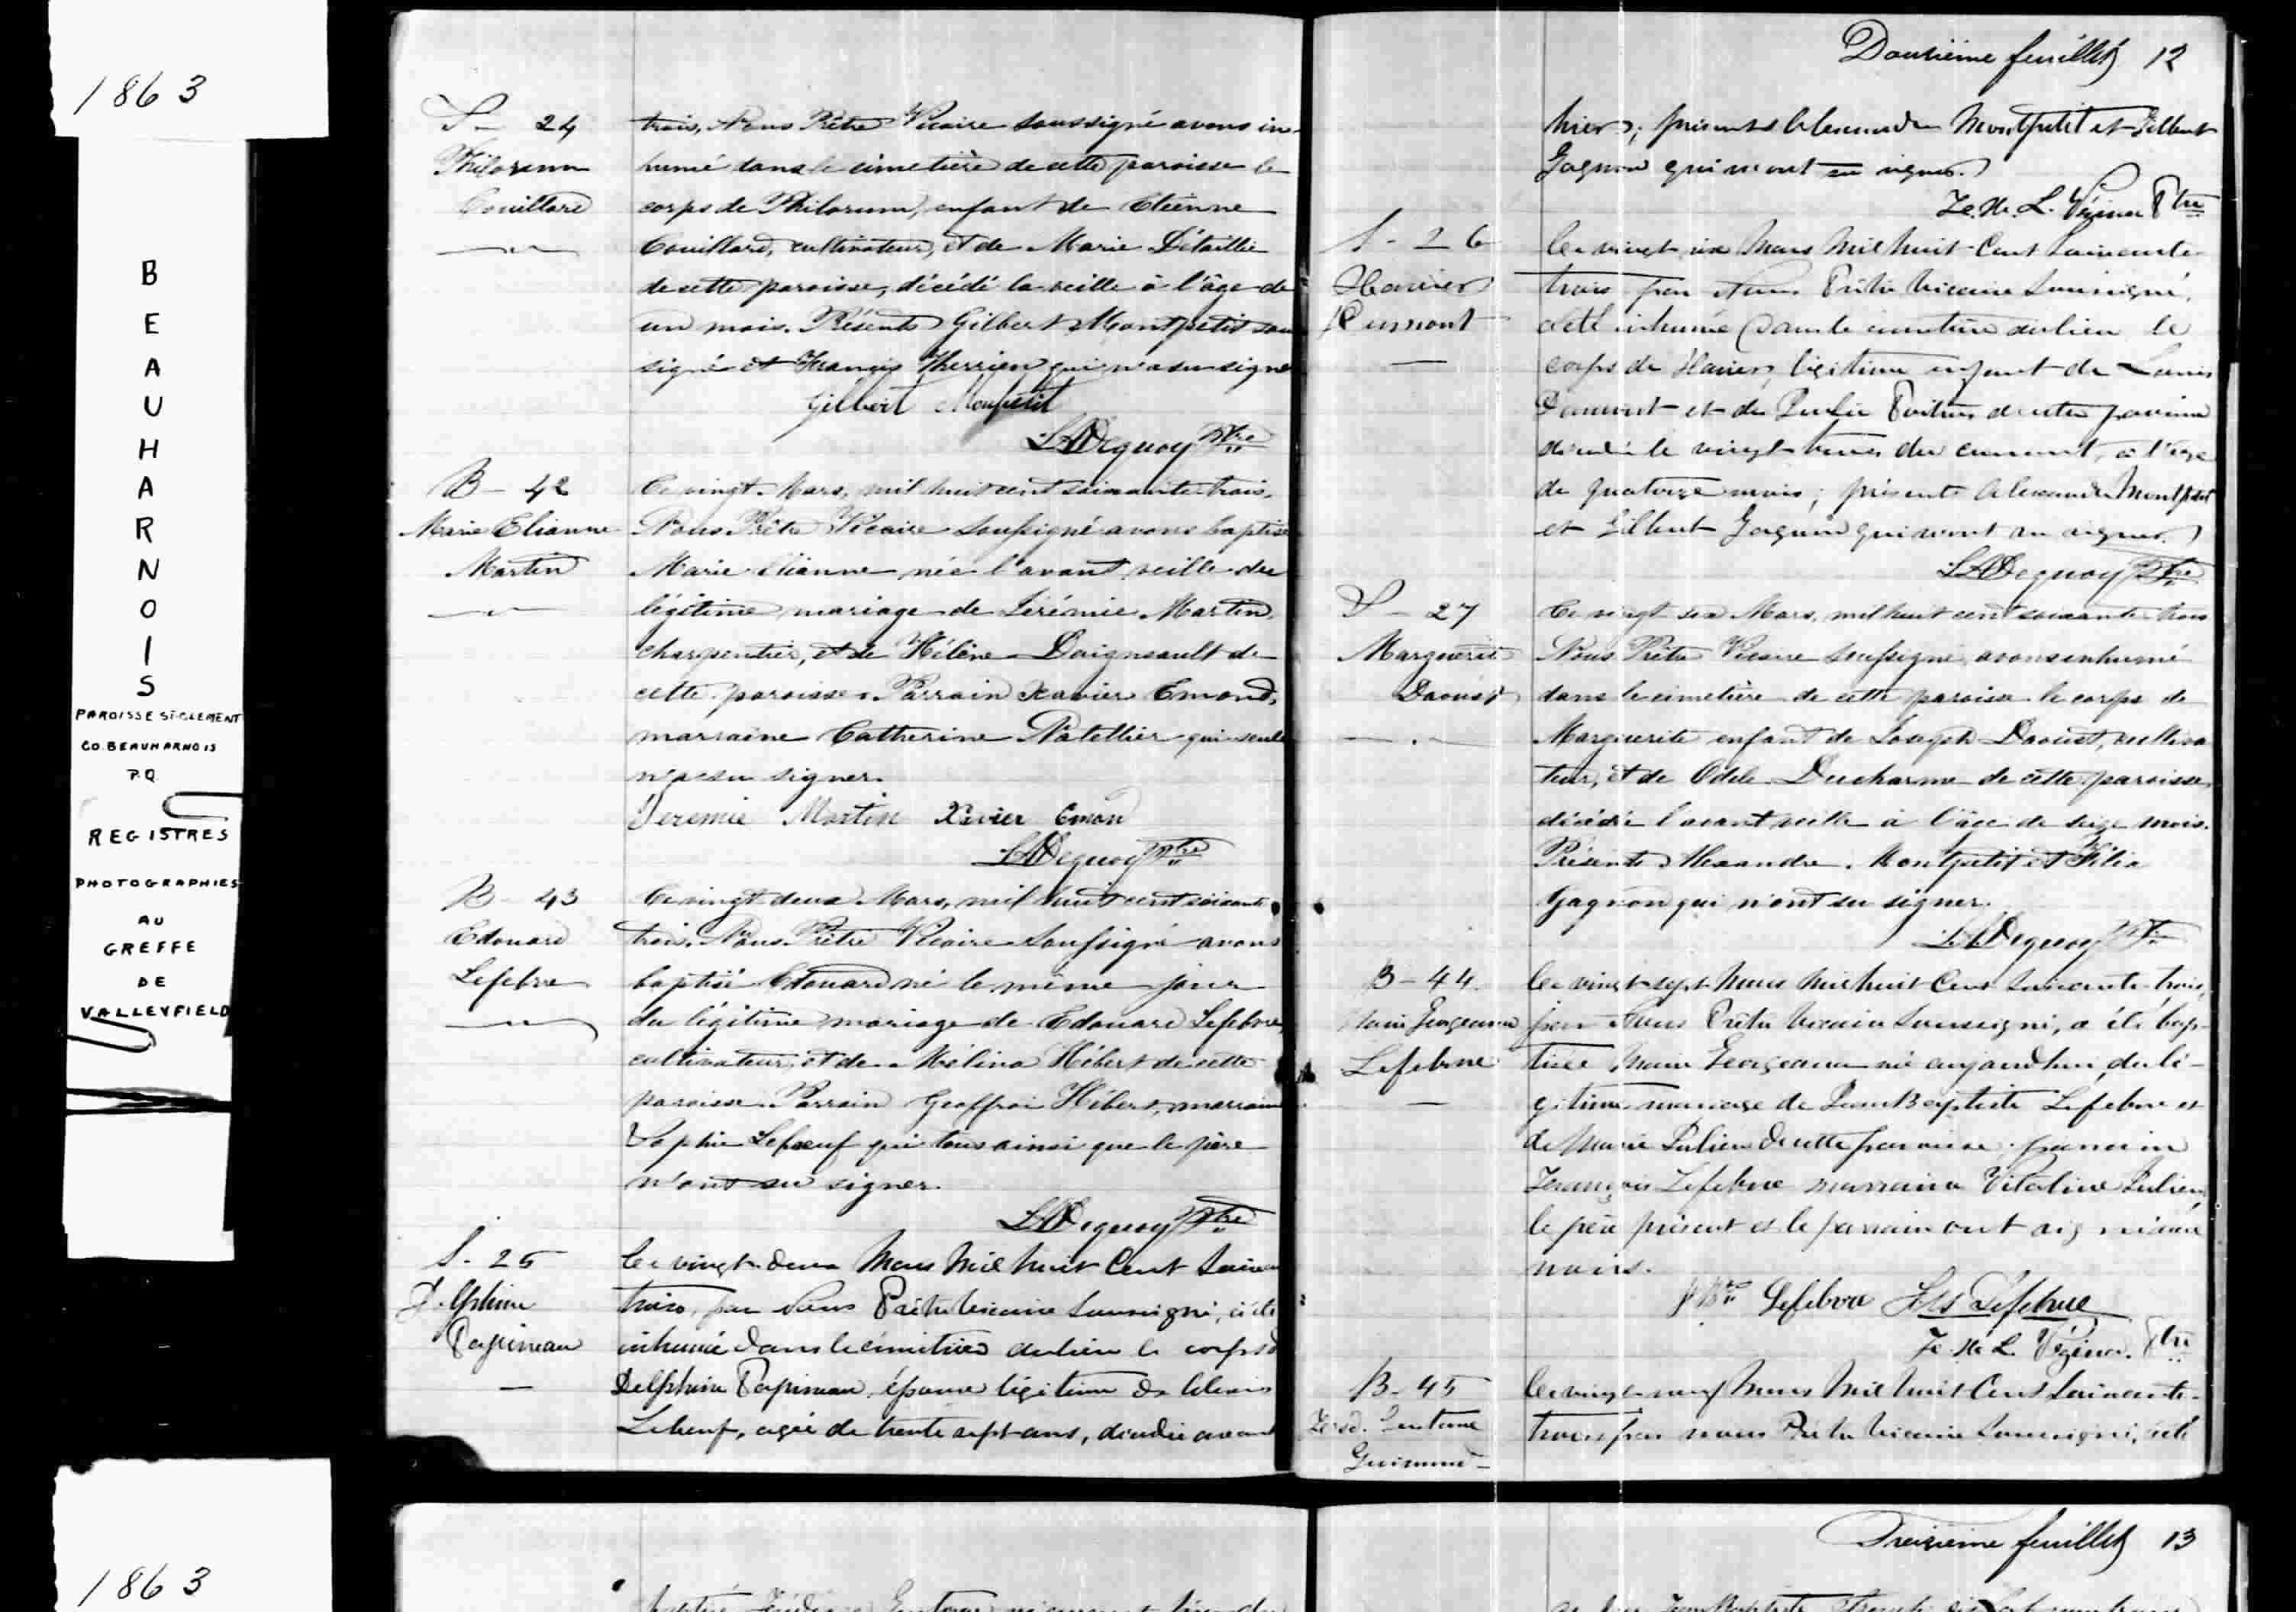 1863
BEAUHARNOIS
PAROISSE ST-CLEMENT
CO. BEAUHARNOIS
P.Q.
REGISTRES
PHOTOGRAPHIES
AU
GREFFE
DE
VALLEYFIELD
1863
S - 24
Couillard
trois, Nous Prêtre Vicaire soussigné avons in-
humé dans le cimetière de cette paroisse le
corps de enfant de Etienne
Couillard, cultivateur, et de Marie Détaillie
de cette paroisse, décédé la veille à l'âge de
un mois. Présents Gilbert Montpetit sous
signé et François Therrien qui n'a su signer
Gilbert Monpetit
LADequoy Ptre
B - 42
Marie Elianne
Martin
Ce vingt Mars, mil huit cent soixante trois,
Nous Prêtre Vicaire soussigné avons baptisé
Marie Elianne née l'avant veille du
légitime mariage de Jérémie Martin,
charpentier, et de Hélène Daigneault de
cette paroisse. Parrain Xavier Emond,
marraine Catherine Patellier qui seule
n'a su signer.
Jeremie Martin Xavier Emon
LADequoy Ptre
B - 43
Edouard
Lefebvre
Ce vingt deux Mars, mil huit cent soixante
trois, Nous Prêtre Vicaire soussigné avons
baptisé Edouard né le même jour
du légitime mariage de Edouard Lefebvre,
cultivateur, et de Mélina Hébert de cette
paroisse. Parrain Geoffroi Hébert, marraine
Sophie Leboeuf qui tous ainsi que le père
n'ont su signer.
LADequoy Ptre
S - 25
Delphine
Papineau
—
Ce vingt deux Mars Mil huit Cent Soixan
trois, par Nous Prêtre Vicaire Soussigné, a été
inhumé dans le cimetière du lieu le corps de
Delphine Papineau, épouse légitime de Alexis
Lebeuf, agée de trente sept ans, décédée avant
Douzième feuillet 12
hier; présents Alexandre Montpetit et Gilbert
Gagnon qui n'ont su signer.
F. H. L. Vézina Ptre
S - 26
Xavier
Dumont
—
Ce vingt six Mars Mil huit Cent Soixante
trois par Nous Prêtre Vicaire Soussigné,
a été inhumé dans le cimetière du lieu le
corps de Xavier, légitime enfant de Louis
Dumont et de Poitras de cette paroisse
décédé le vingt du courant, à l'âge
de quatorze mois; présents Alexandre Montpetit
et Gilbert Gagnon qui n'ont su signer.
LADequoy Ptre
S - 27
Marguerite
Daoust
Ce vingt six Mars, mil huit cent soixante trois
Nous Prêtre Vicaire soussigné, avons inhumé
dans le cimetière de cette paroisse le corps de
Marguerite enfant de Joseph Daoust, cultiva
teur, et de Odele Ducharme de cette paroisse,
décédée l'avant veille à l'âge de seize mois.
Présents Alexandre Montpetit et
Gagnon qui n'ont su signer.
LADequoy Ptre
B - 44
Marie Georgeanna
Lefebvre
—
Ce vingt sept Mars Mil huit Cent Soixante trois,
par Nous Prêtre Vicaire Soussigné, a été bap-
tisée Marie Georgeanna née aujourd'hui, du lé-
gitime mariage de Jean Baptiste Lefebvre et
de Marie Julien de cette paroisse. parrain
François Lefebvre marraine Vitaline Julien
le père présent et le parrain ont signé avec
nous.
JBte Lefebvre Frs Lefebvre
F. H. L. Vézina. Ptre
B - 45
Ce vingt neuf Mars Mil huit Cent Soixante-
trois par nous Prêtre Vicaire Soussigné, a été
Treizième feuillet 13